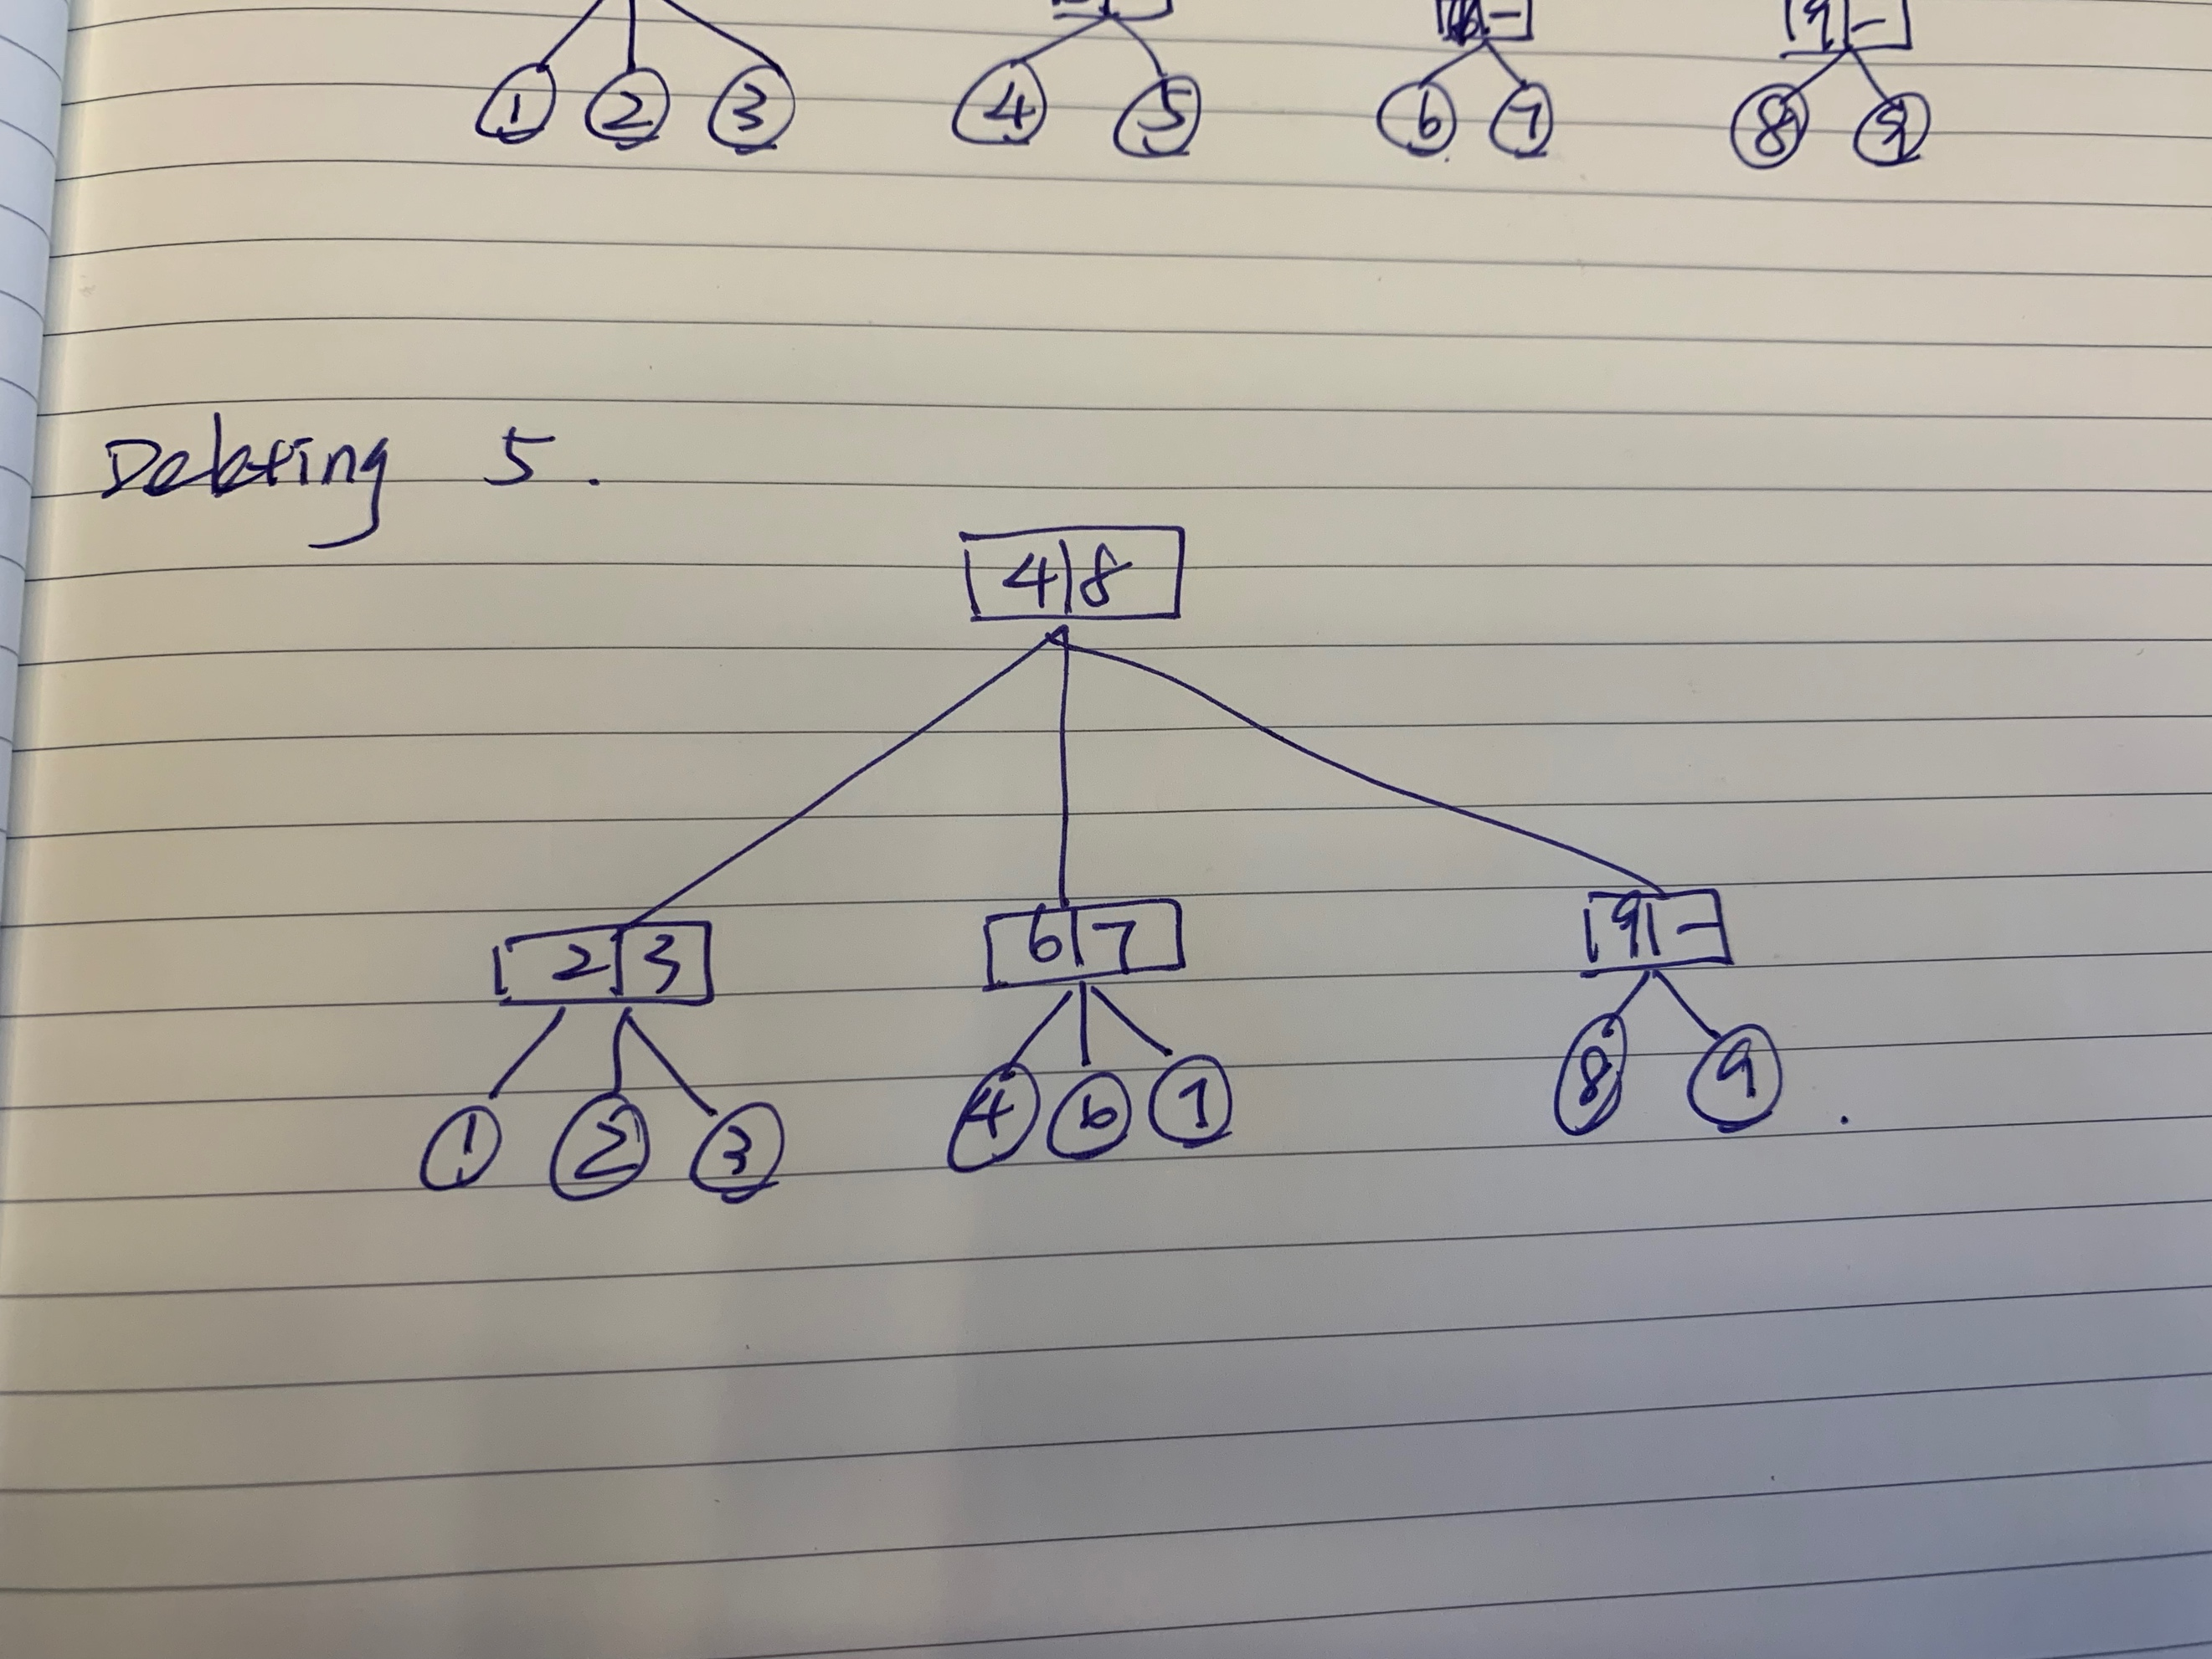 9 -
1 2 3 4 5 6 7 8 9
Deleting 5.
4 8
2 3 6 7 9 -
1 2 3 4 6 7 8 9 .